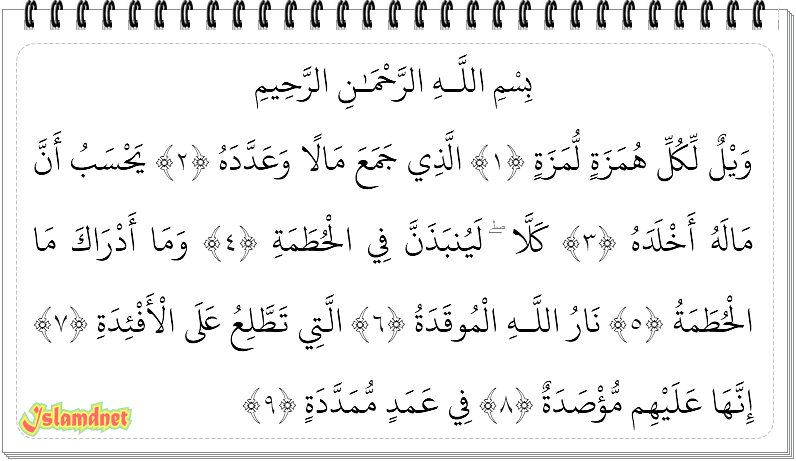 بِسْمِ اللَّـهِ الرَّحْمَـٰنِ الرَّحِيمِ
وَيْلٌ لِّكُلِّ هُمَزَةٍ لُّمَزَةٍ ﴿١﴾ الَّذِي جَمَعَ مَالًا وَعَدَّدَهُ ﴿٢﴾ يَحْسَبُ أَنَّ
مَالَهُ أَخْلَدَهُ ﴿٣﴾ كَلَّا ۖ لَيُنبَذَنَّ فِي الْحُطَمَةِ ﴿٤﴾ وَمَا أَدْرَاكَ مَا
الْحُطَمَةُ ﴿٥﴾ نَارُ اللَّـهِ الْمُوقَدَةُ ﴿٦﴾ الَّتِي تَطَّلِعُ عَلَى الْأَفْئِدَةِ ﴿٧﴾
إِنَّهَا عَلَيْهِم مُّؤْصَدَةٌ ﴿٨﴾ فِي عَمَدٍ مُّمَدَّدَةٍ ﴿٩﴾
Islamdnet